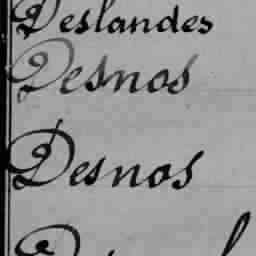 Deslandes
Desnos
Desnos